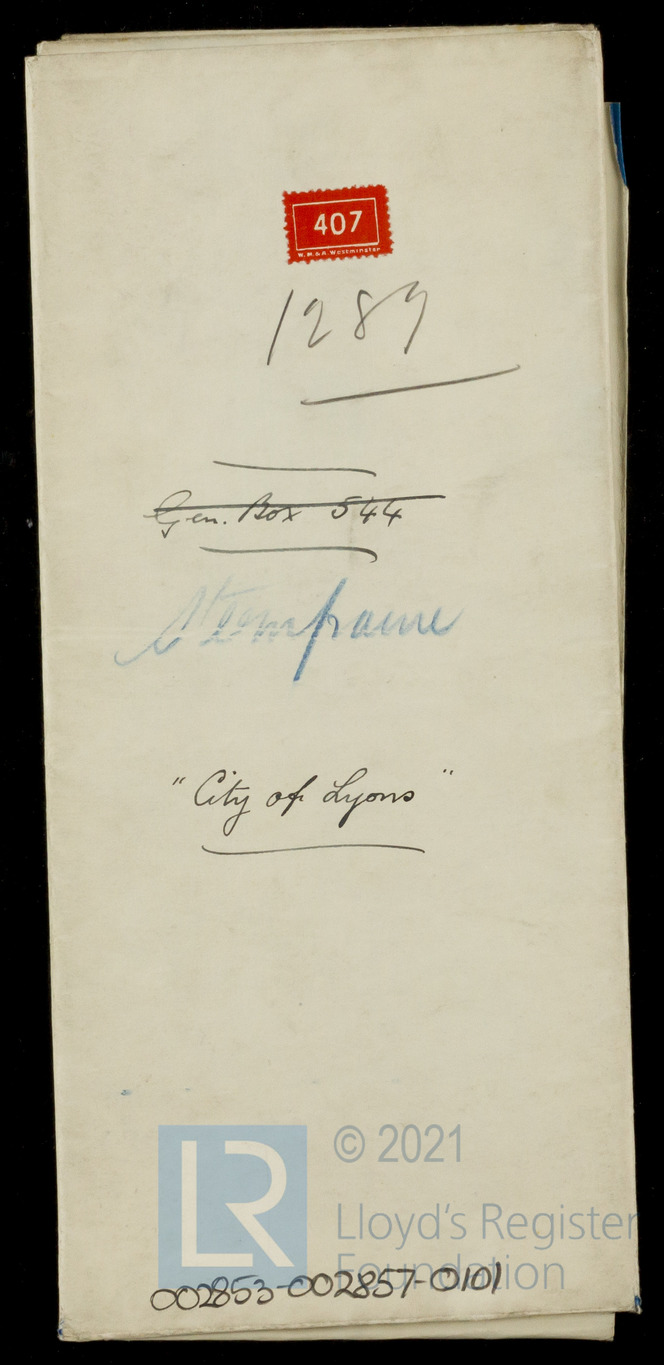 407
W.M.&A. Westminster
1289
Gen. Box 544
"City of Lyons"
© 2021
LR
Lloyd's Register
Foundation
002853-002857-0101